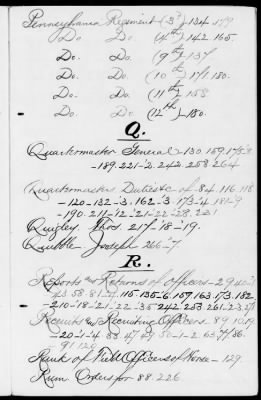 Pennsylvania Regiment (3d) 134 179
Do. Do. (4th) 142 165.
Do. Do. (9th) 137
Do. Do. (10th) 171 180.
Do. Do. (11th) 158
Do. Do. (12th) 180.
Q.
Quartermaster General 130 159 175-8
-189. 221-2 242 253 264
Quartermasters Duties &c of 84. 116 118
-120-132-3. 162-3 173-4 181-9
-190 211-12-21-22-28. 231
Quigley Thos. 217-18-19.
Quibble Joseph 266-7.
R.
Reports and Returns of Officers - 29 40-1
115 135-6. 157. 163 173. 182
-210-18-21-22-35 242 253 261-2
Recruits and Recruiting Officers. 89 10
-20-1-4 33 47 49
91 120
Rank of Field Officers of Horse - 129
Rum Orders for 88. 226